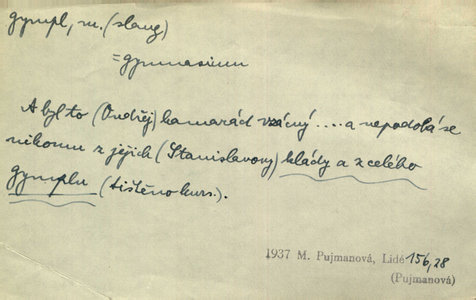 gympl, m. (slang)
= gymnasium
A byl to (Ondřej) kamarád vzácný .... a nepodobá se
nikomu z jejich (Stanislavovy) klády a z celého
gymplu (tištěno kurs.).
1937 M. Pujmanová, Lidé 156,28
(Pujmanová)